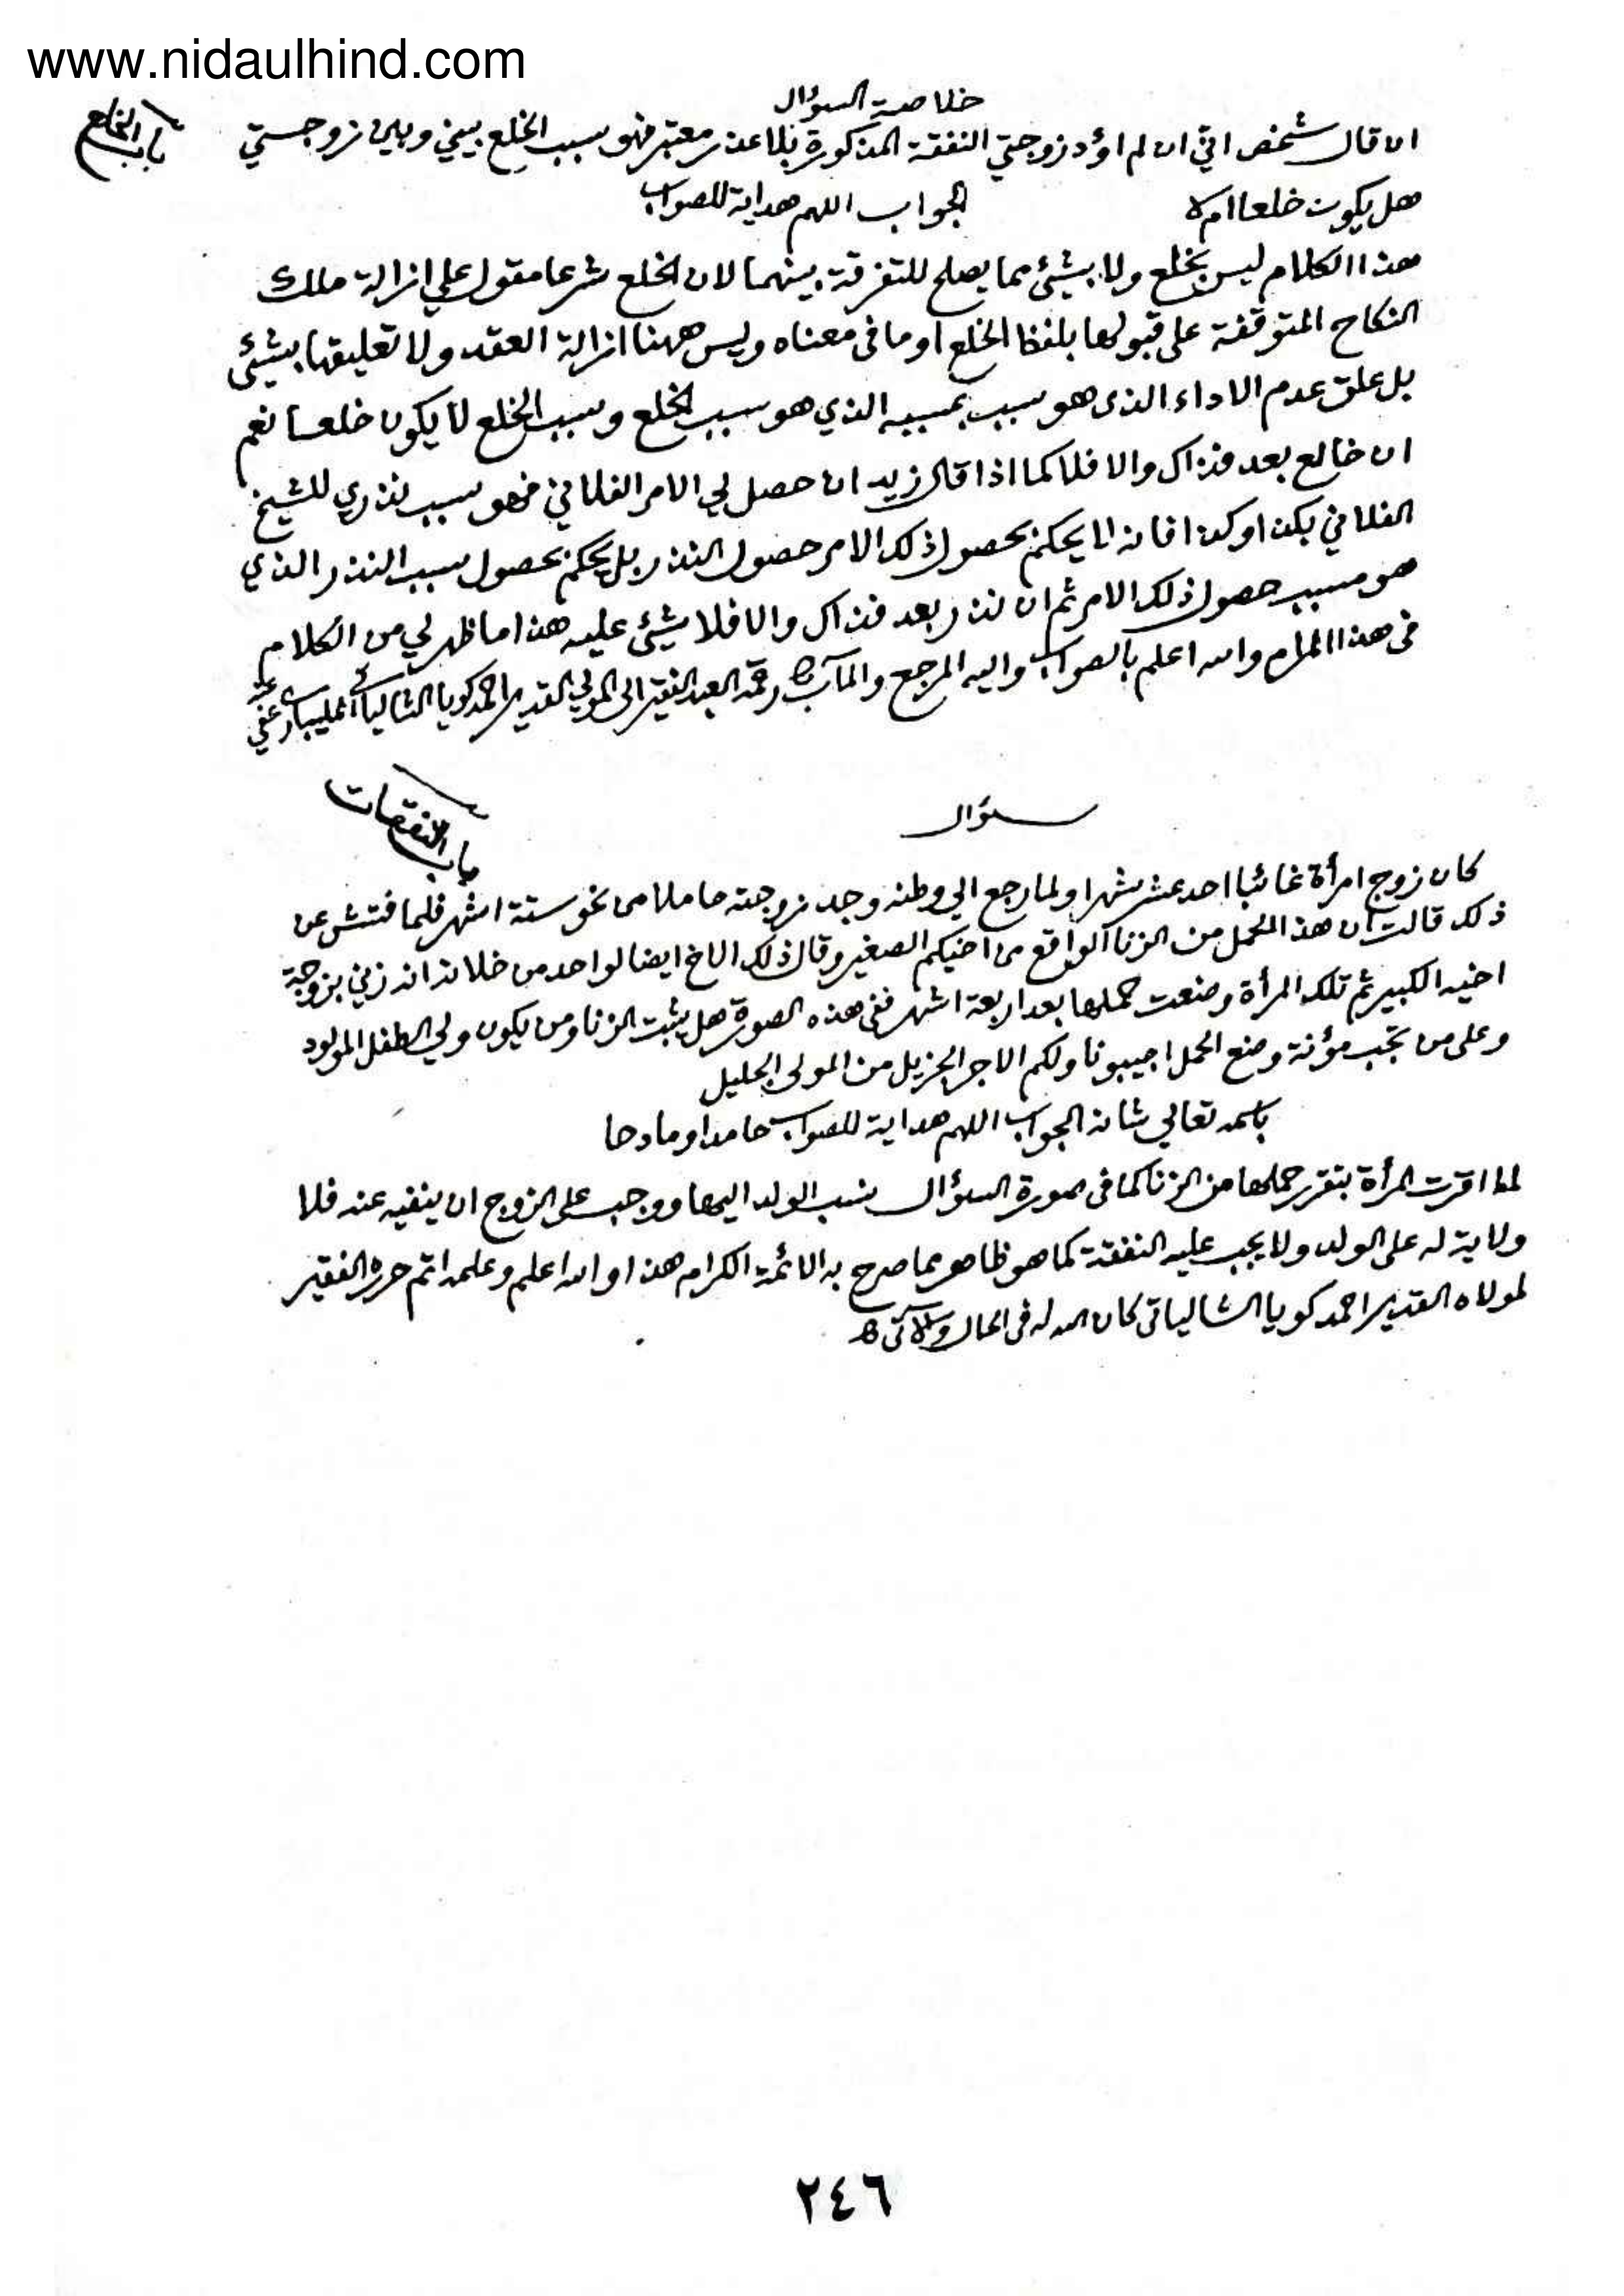 www.nidaulhind.com
خلاصة السؤال
باب الخلع
ان قال شخص اني ان لم اؤد زوجتي النفقة المذكورة بلا عذر معتبر فهو سبب الخلع بيني وبين زوجتي
هل يكون خلعا ام لا
الجواب اللهم هداية للصواب
هذا الكلام ليس بخلع ولا بشيئ مما يصلح للتفرقة بينهما لان الخلع شرعا مقول علي ازالة ملك
النكاح المتوقفة على قبولها بلفظ الخلع او ما في معناه وليس ههنا ازالة العقد ولا تعليقها بشيئ
بل علق عدم الاداء الذى هو سبب بمسببه الذي هو سبب الخلع وسبب الخلع لا يكون خلعا نعم
ان خالع بعد فذاك والا فلا كما اذا قال زيد ان حصل لي الامر الفلاني فهو سبب نذري للشيخ
الفلاني بكذا وكذا فانه لا يحكم بحصول ذلك الامر حصول النذر بل يحكم بحصول سبب النذر الذي
هو مسبب حصول ذلك الامر ثم ان نذر بعد فذاك والا فلا شيئ عليه هذا ما ظهر لي من الكلام
فى هذا المرام والله اعلم بالصواب واليه المرجع والمآب رقمه العبد الفقير الى المولي القدير احمد كويا الشالياتي المليباري عفي عنه
سؤال
باب النفقات
كان زوج امرأة غائبا احد عشر شهرا ولما رجع الي وطنه وجد زوجته حاملا من نحو ستة اشهر فلما فتش عن
ذلك قالت ان هذا الحمل من الزنا الواقع من اخيكم الصغير وقال ذلك الاخ ايضا لواحد من خلانه انه زني بزوجة
اخيه الكبير ثم تلك المرأة وضعت حملها بعد اربعة اشهر ففى هذه الصورة هل يثبت الزنا ومن يكون ولي الطفل المولود
وعلى من تجب مؤنة وضع الحمل اجيبونا ولكم الاجر الجزيل من المولى الجليل
باسمه تعالي شانه الجواب اللهم هداية للصواب حامدا ومادحا
لما اقرت المرأة بتقرر حملها من الزنا كما فى صورة السؤال ينسب الولد اليها ووجب على الزوج ان ينفيه عنه فلا
ولاية له على الولد ولا يجب عليه النفقة كما هو ظاهر مما صرح به الائمة الكرام هذا والله اعلم وعلمه اتم حرره الفقير
لمولاه القدير احمد كويا الشالياتى كان الله له فى الحال والآتى
٢٤٦